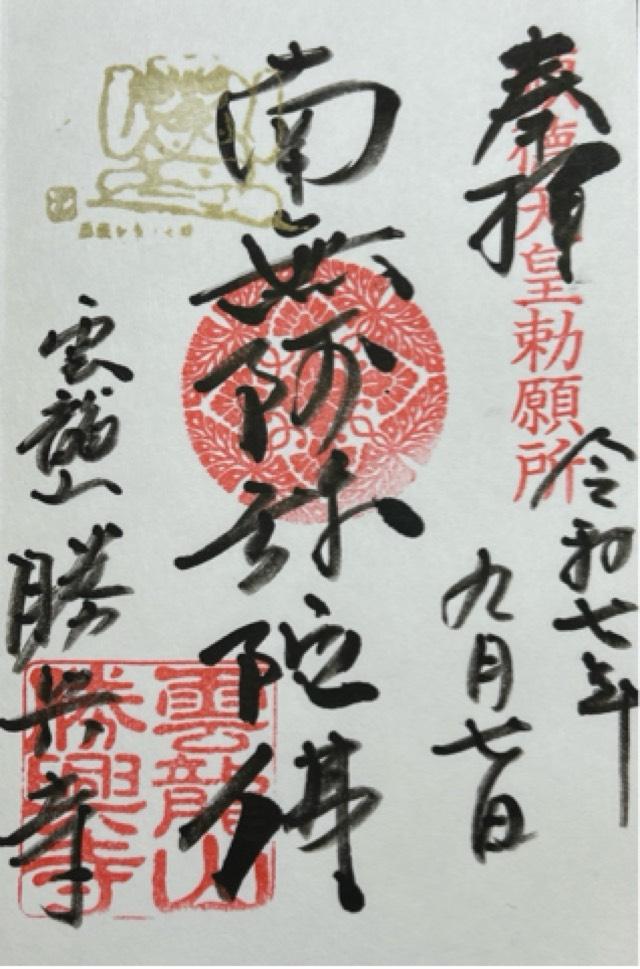 奉拝
順徳天皇勅願所
令和七年
九月七日
南無阿弥陀佛
雲龍山
勝興寺
雲龍山
勝興寺